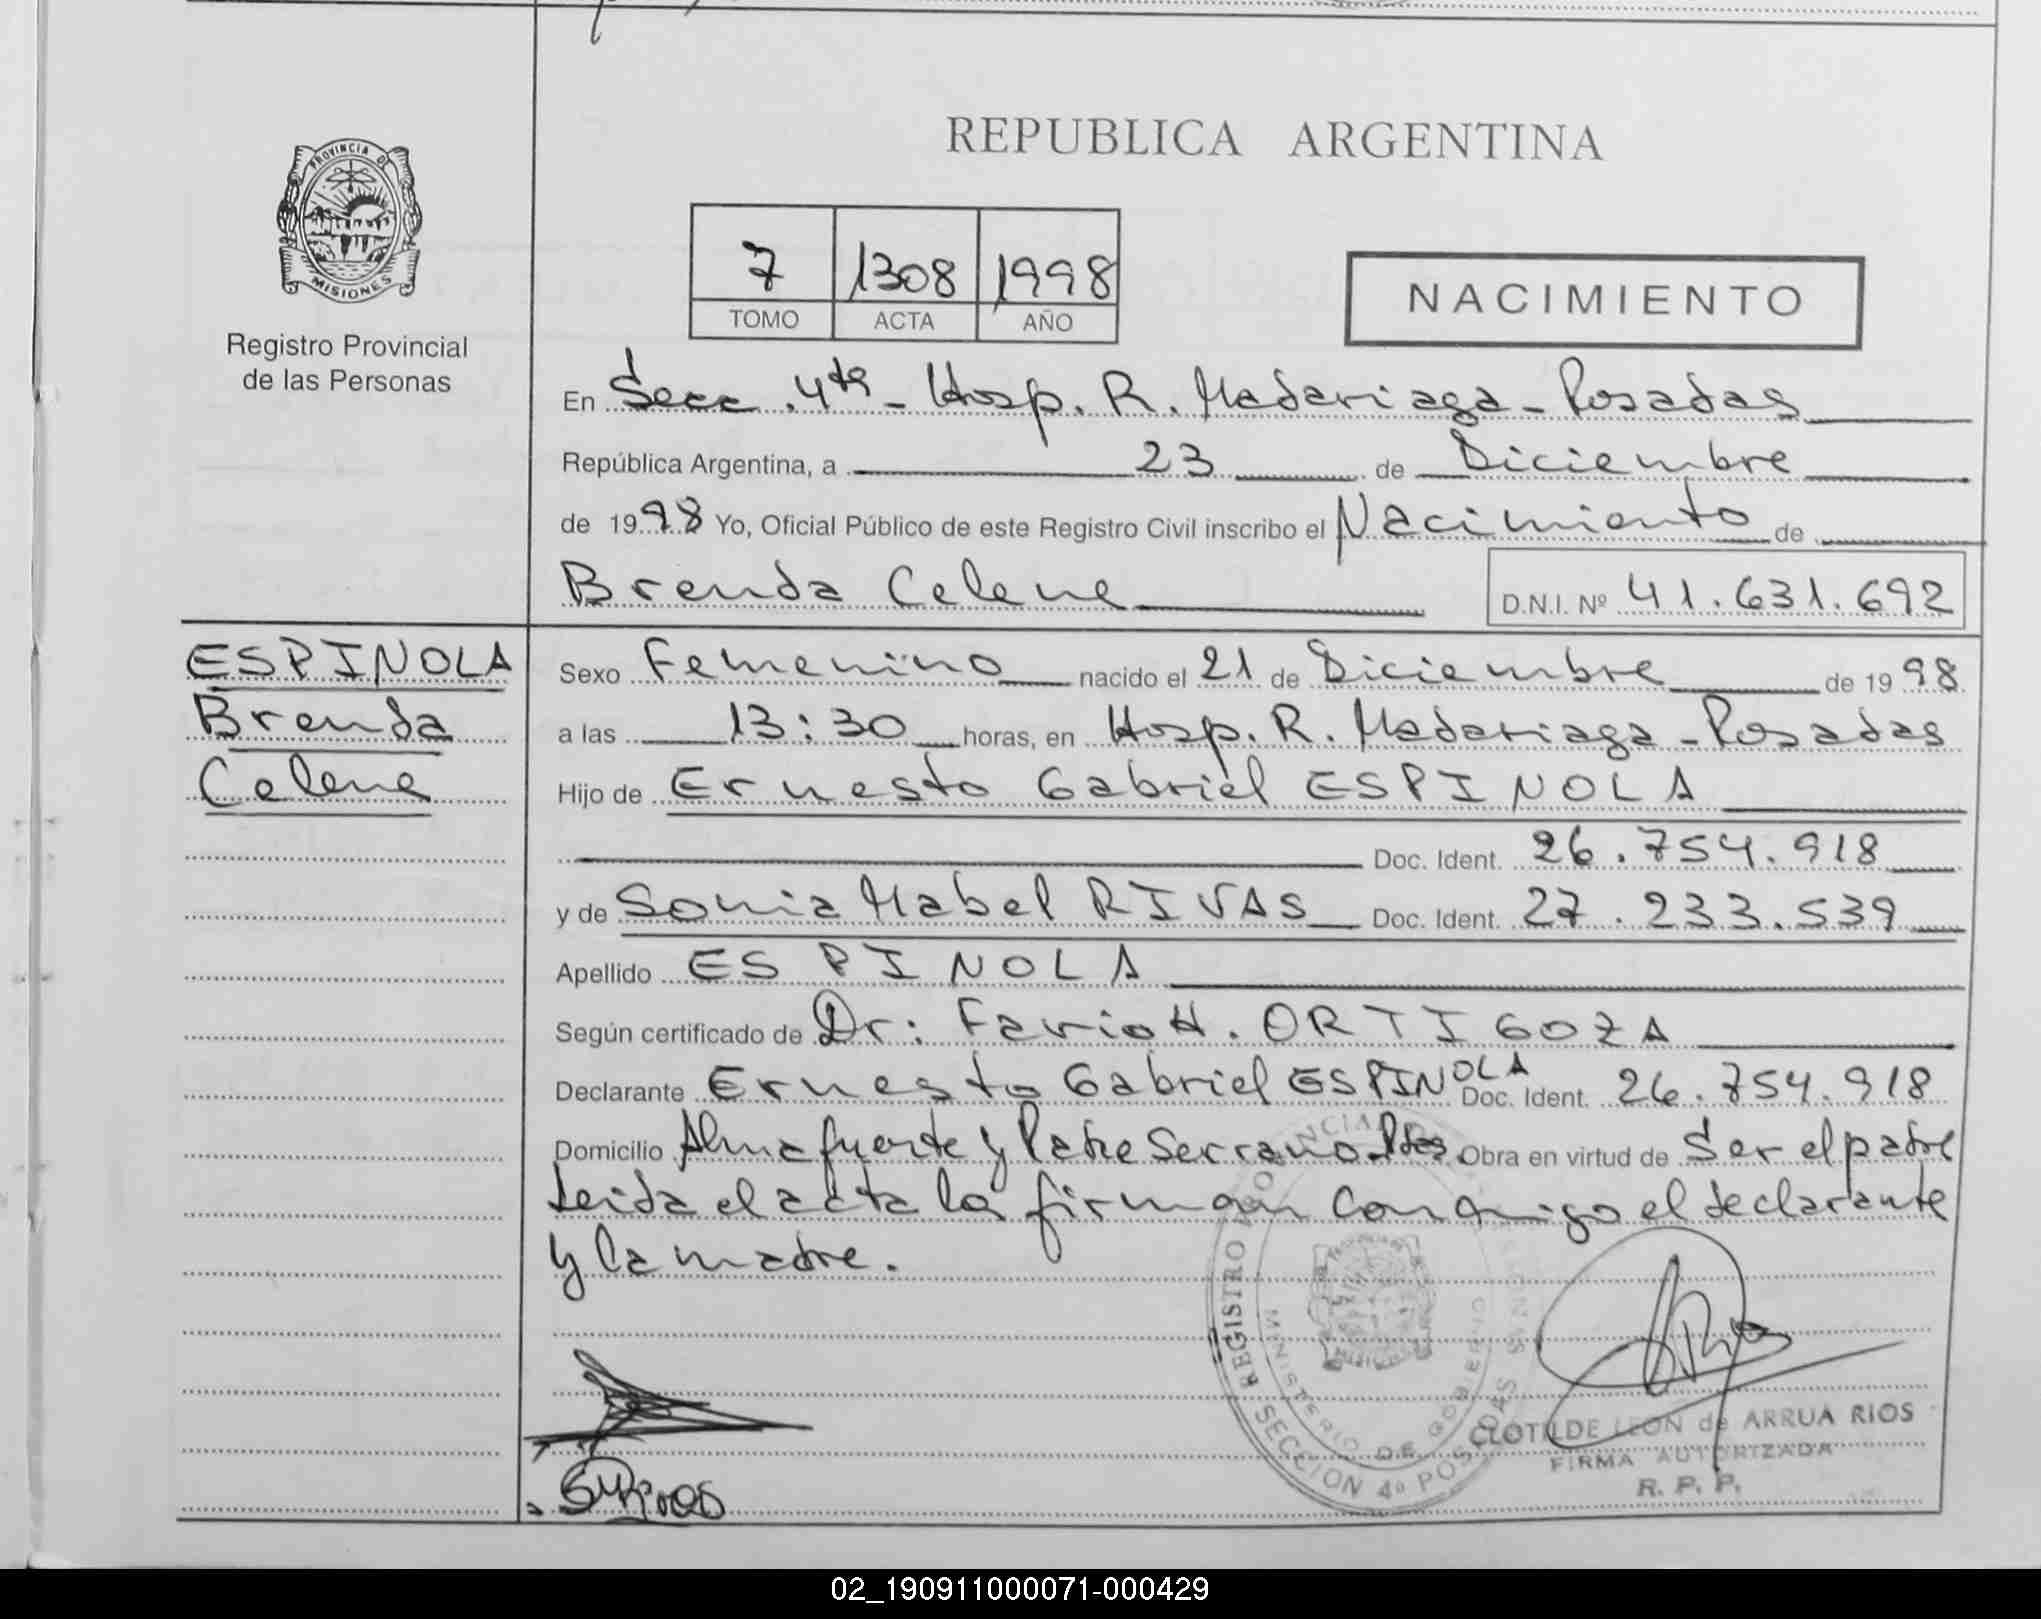 REPUBLICA ARGENTINA
PROVINCIA DE
MISIONES
Registro Provincial
de las Personas
7 1308 1998
TOMO ACTA AÑO
NACIMIENTO
En Secc. 4ta - Hosp. R. Madariaga - Posadas
República Argentina, a 23 de Diciembre
de 1998 Yo, Oficial Público de este Registro Civil inscribo el Nacimiento de
Brenda Celene D.N.I. Nº 41.631.692
ESPINOLA
Brenda
Celene
Sexo Femenino nacido el 21 de Diciembre de 1998
a las 13:30 horas, en Hosp. R. Madariaga - Posadas
Hijo de Ernesto Gabriel ESPINOLA
Doc. Ident. 26.754.918
y de Sonia Mabel RIVAS Doc. Ident. 27.233.539
Apellido ESPINOLA
Según certificado de Dr: Favio H. ORTIGOZA
Declarante Ernesto Gabriel ESPINOLA Doc. Ident. 26.754.918
Domicilio Almafuerte y Padre Serrano Pdas Obra en virtud de Ser el padre
Leida el acta la firman conmigo el declarante
y la madre.
REGISTRO PROVINCIAL
MINISTERIO DE GOBIERNO
SECCION 4º POSADAS
CLOTILDE LEON de ARRUA RIOS
FIRMA AUTORIZADA
R. P. P.
02_190911000071-000429